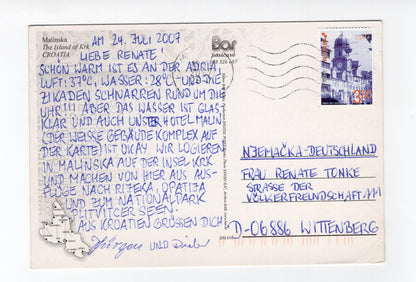 Malinska
The Island of Krk
CROATIA
Bor
postcard
AM 24. JULI 2007
LIEBE RENATE!
SCHÖN WARM IST ES AN DER ADRIA,
LUFT: 37°C, WASSER: 28°C - UND DIE
ZIKADEN SCHNARREN RUND UM DIE
UHR!!! ABER DAS WASSER IST GLAS-
KLAR UND AUCH UNSER HOTEL
(DER WEISSE GEBÄUDE KOMPLEX AUF
DER KARTE) IST OKAY. WIR LOGIEREN
IN MALINSKA AUF DER INSEL KRK
UND MACHEN VON HIER AUS AUS-
FLÜGE NACH RIJEKA, OPATIJA
UND ZUM NATIONALPARK
PLITVITCER SEEN.
AUS KROATIEN GRÜSSEN DICH
Jürgen UND
NJEMAČKA-DEUTSCHLAND
FRAU RENATE TONKE
STRASSE DER
VÖLKERFREUNDSCHAFT 111
D-06886 WITTENBERG